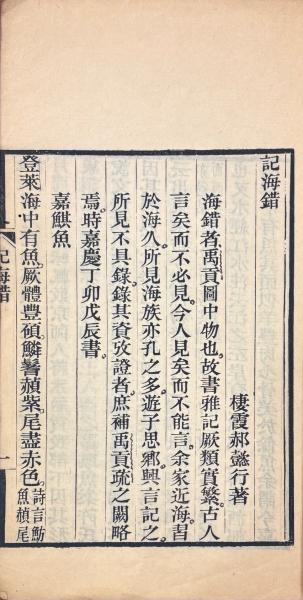 記海錯
棲霞郝懿行著
海錯者禹貢圖中物也故書雅記厥類實繁古人
言矣而不必見今人見矣而不能言余家近海習
於海久所見海族亦孔之多遊子思鄉興言記之
所見不具錄錄其資攷證者庶補禹貢疏之闕略
焉時嘉慶丁卯戊辰書
嘉鯕魚
登萊海中有魚厥體豐碩鱗鬐赬紫尾盡赤色詩言魴
魚赬尾
記海錯
一